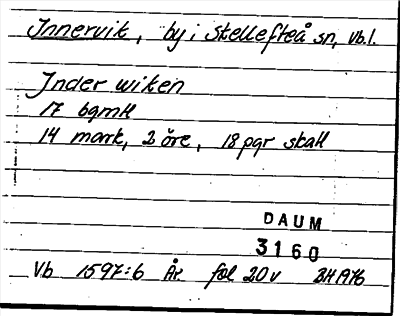 Innervik, by i Skellefteå sn, Vb.l.
Inder wiken
17 bgmH
14 mark, 2 öre, 18 pgr skatt
DAUM
3160
Vb 1597:6 År fol 20 v